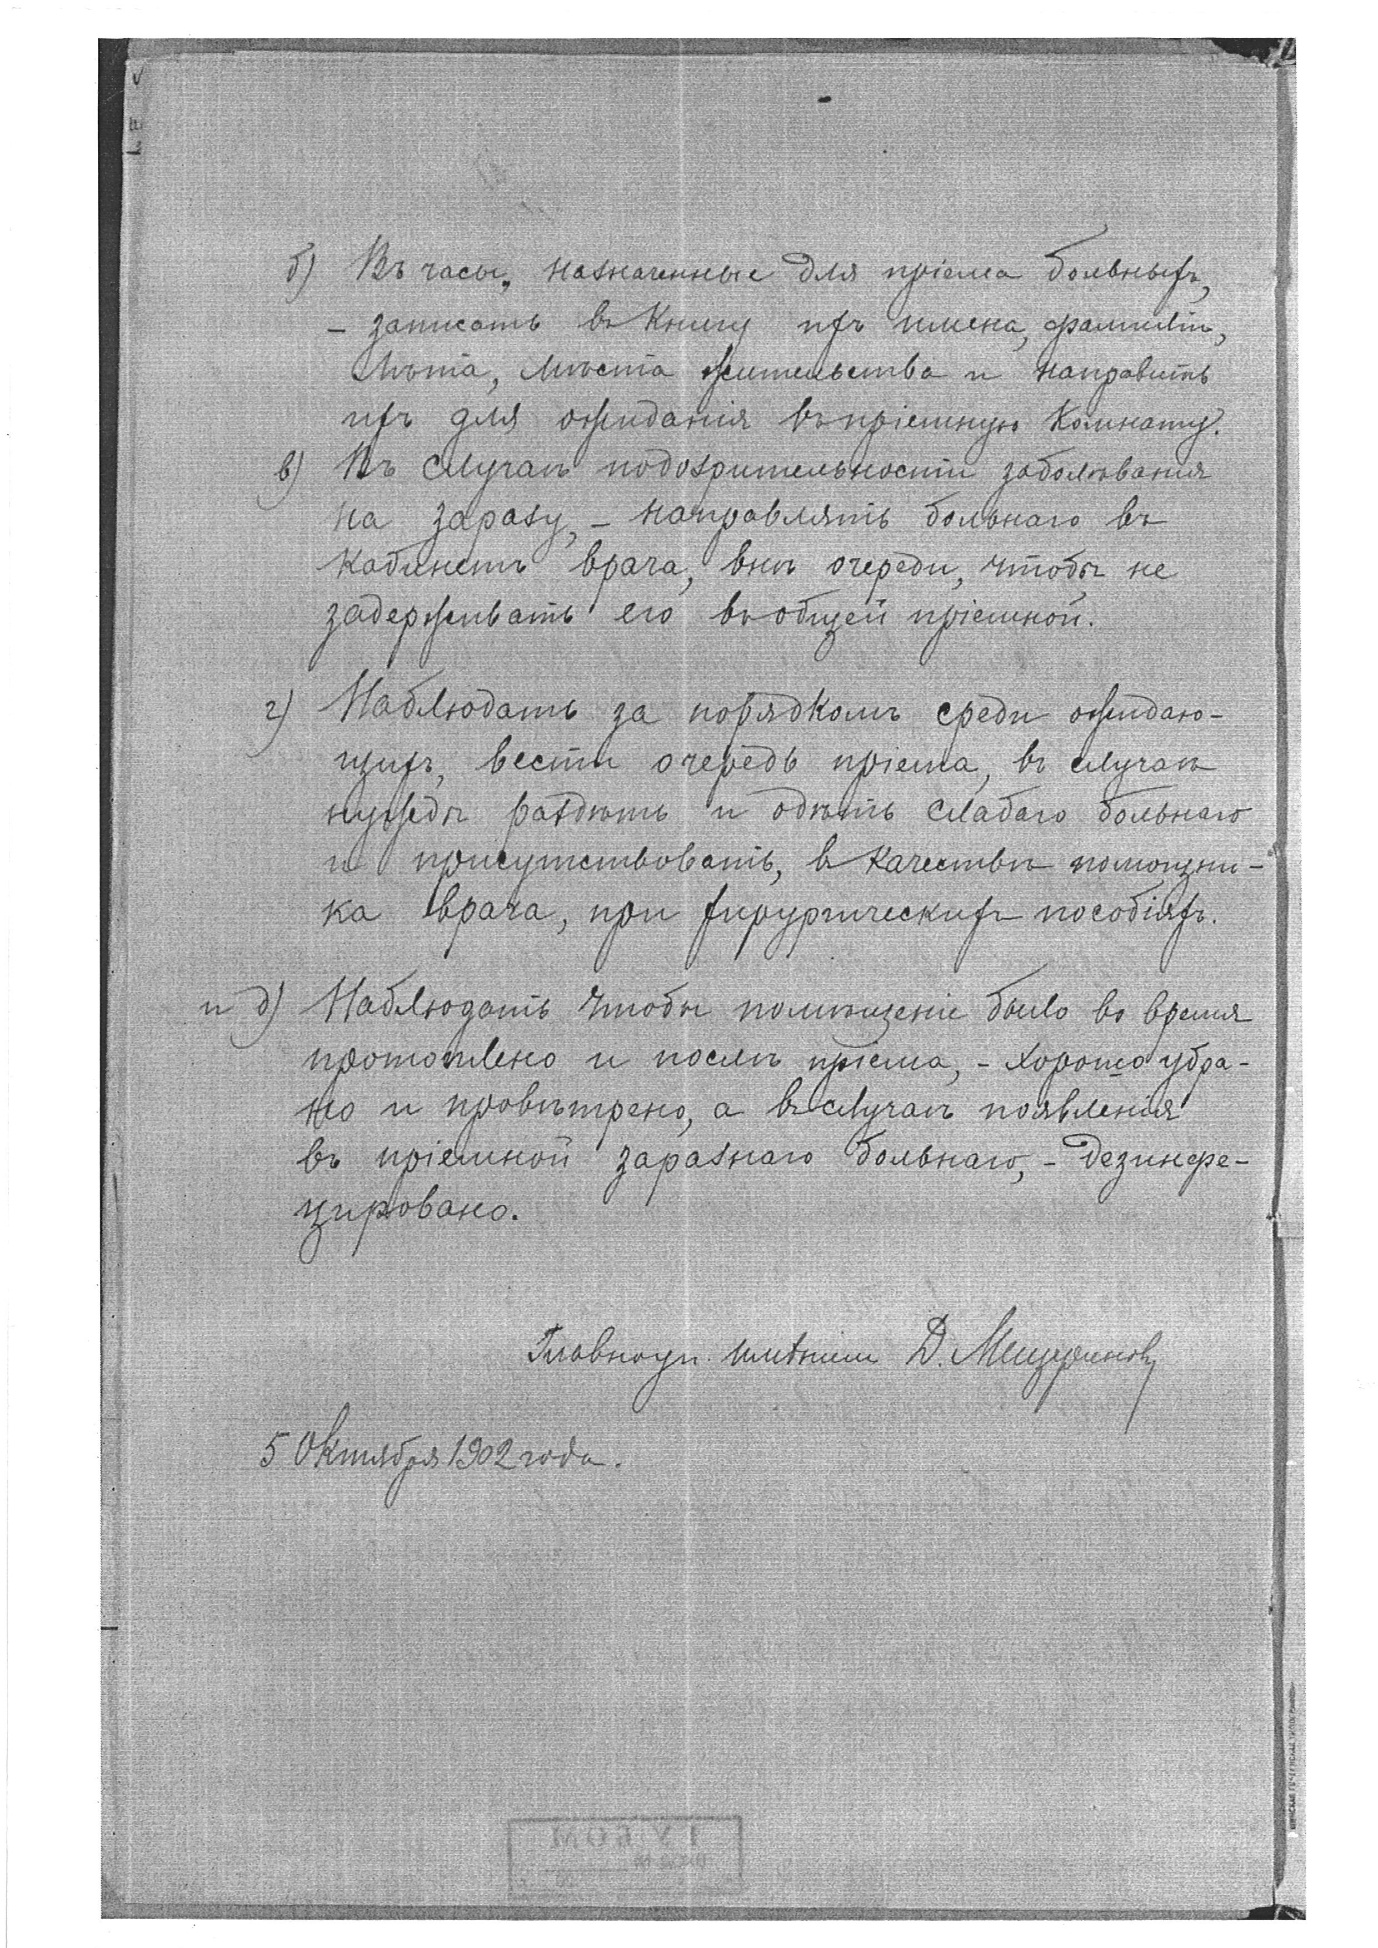 б) Въ часы, назначенные для пріема больныхъ,
– записать въ книгу ихъ имена, фамиліи,
лѣта, мѣста жительства и направить
ихъ для ожиданія въ пріемную комнату.
в) Въ случаѣ подозрительности заболѣванія
на заразу, – направлять больнаго въ
кабинетъ врача, внѣ очереди, чтобы не
задерживать его въ общей пріемной.
г) Наблюдать за порядкомъ среди ожидаю-
щихъ, вести очередь пріема, въ случаѣ
нужды раздѣть и одѣть слабаго больнаго
и присутствовать, въ качествѣ помощни-
ка врача, при хирургическихъ пособіяхъ.
и д) Наблюдать чтобы помѣщеніе было во время
протоплено и послѣ пріема, – хорошо убра-
но и провѣтрено, а въ случаѣ появленія
въ пріемной заразнаго больнаго, – дезинфе-
цировано.
Главноуп. имѣніем Д. Мещериновъ
5 Октября 1902 года.